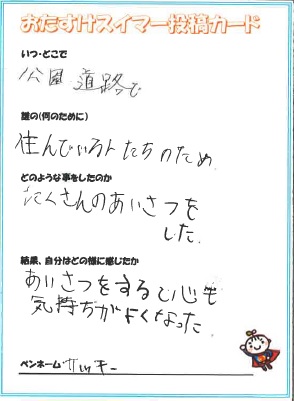 おたすけスイマー投稿カード
いつ・どこで
公園 道路で
誰の(何のために)
住んでいる人たちのため
どのような事をしたのか
たくさんのあいさつを
した.
結果、自分はどの様に感じたか
あいさつをすると心も
気持ちがよくなった
ペンネーム サッキー